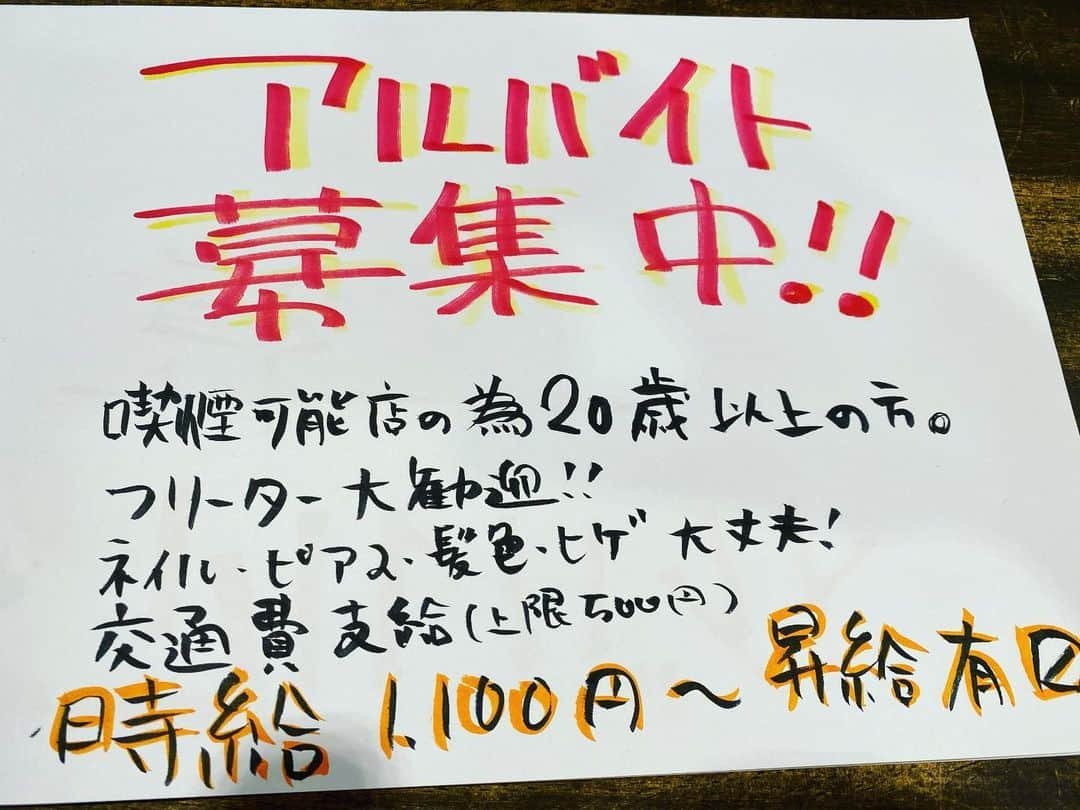 アルバイト
募集中!!
喫煙可能店の為20歳以上の方。
フリーター大歓迎!!
ネイル・ピアス・髪色・ヒゲ大丈夫!
交通費支給(上限500円)
時給1,100円～昇給有